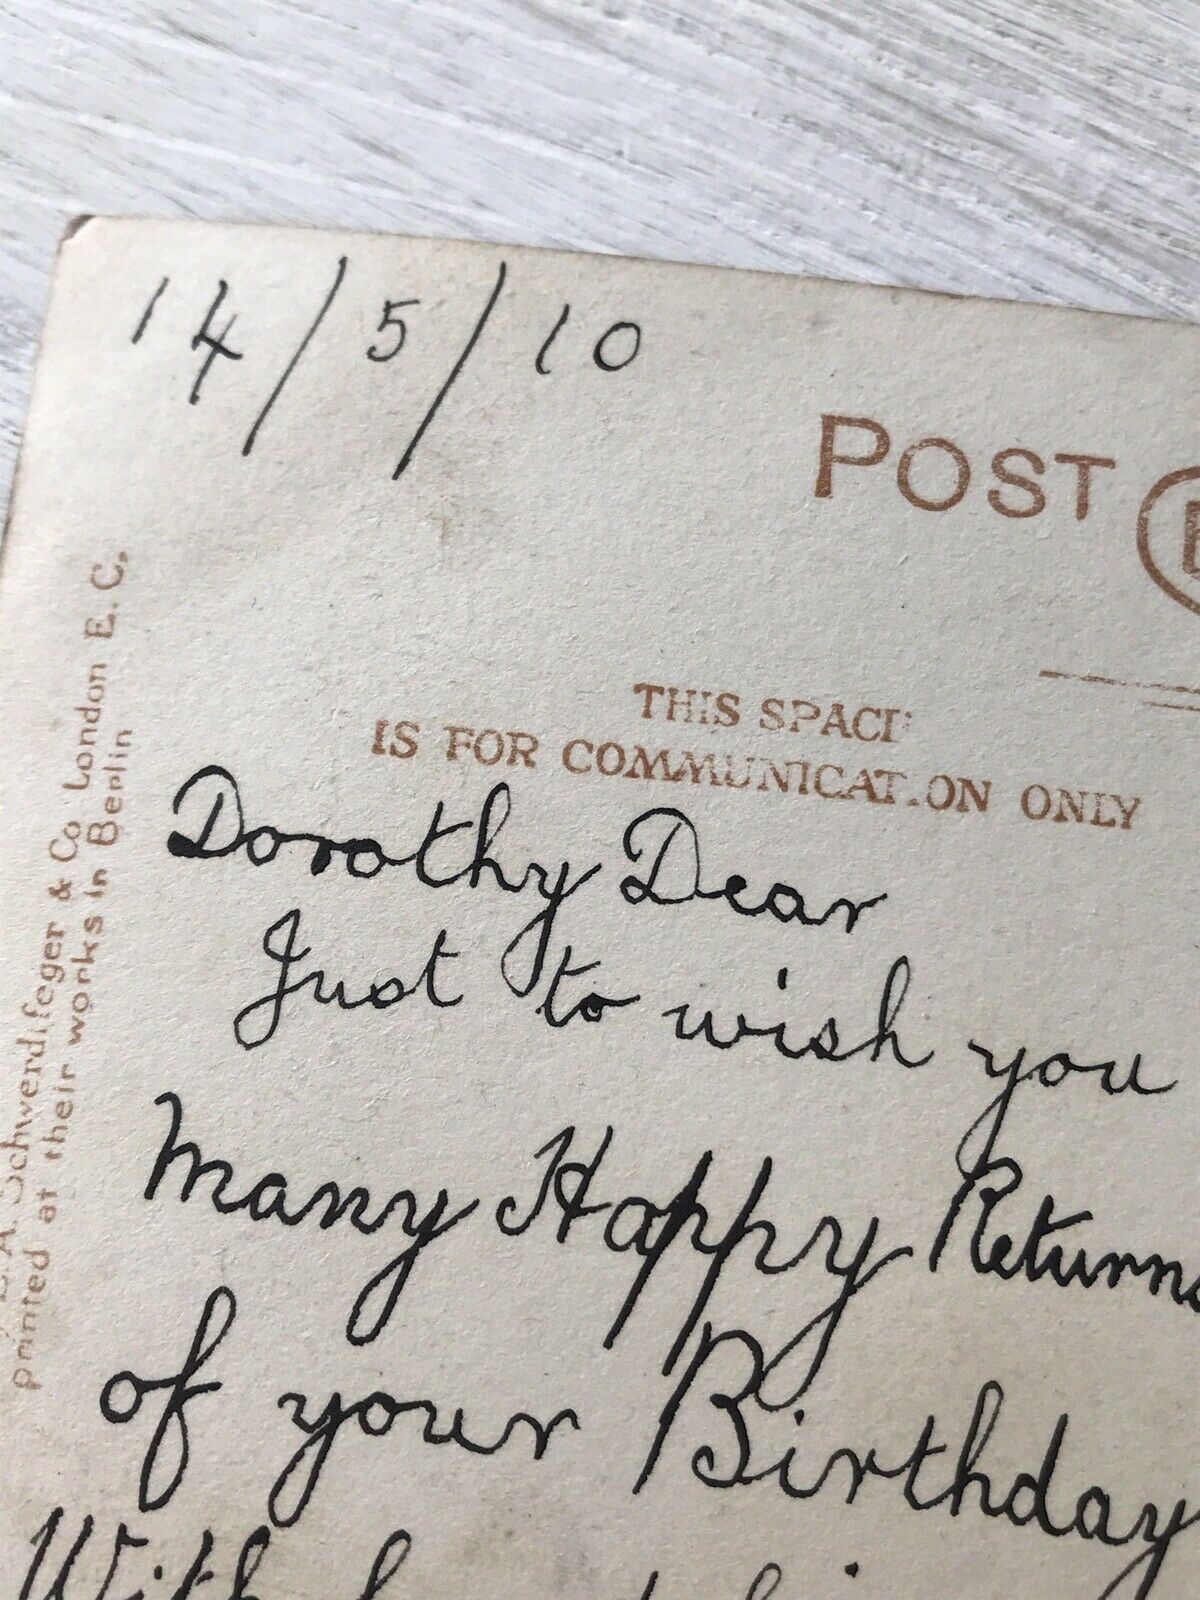 14/5/10
POST
THIS SPACE
IS FOR COMMUNICATION ONLY
Dorothy Dear
Just to wish you
Many Happy Returns
of your Birthday
With
E.A. Schwerdtfeger & Co London E.C.
printed at their works in Berlin